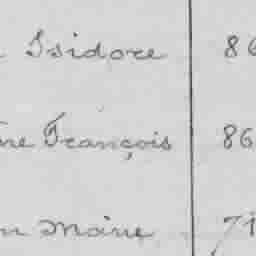 Isidore 86
François 86
Marie 71